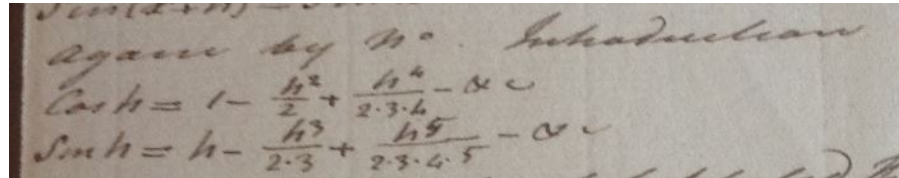 Sin(x+h) =
again by no. Introduction
Cos h = 1 - h²/2 + h⁴/2·3·4 - &c
Sin h = h - h³/2·3 + h⁵/2·3·4·5 - &c